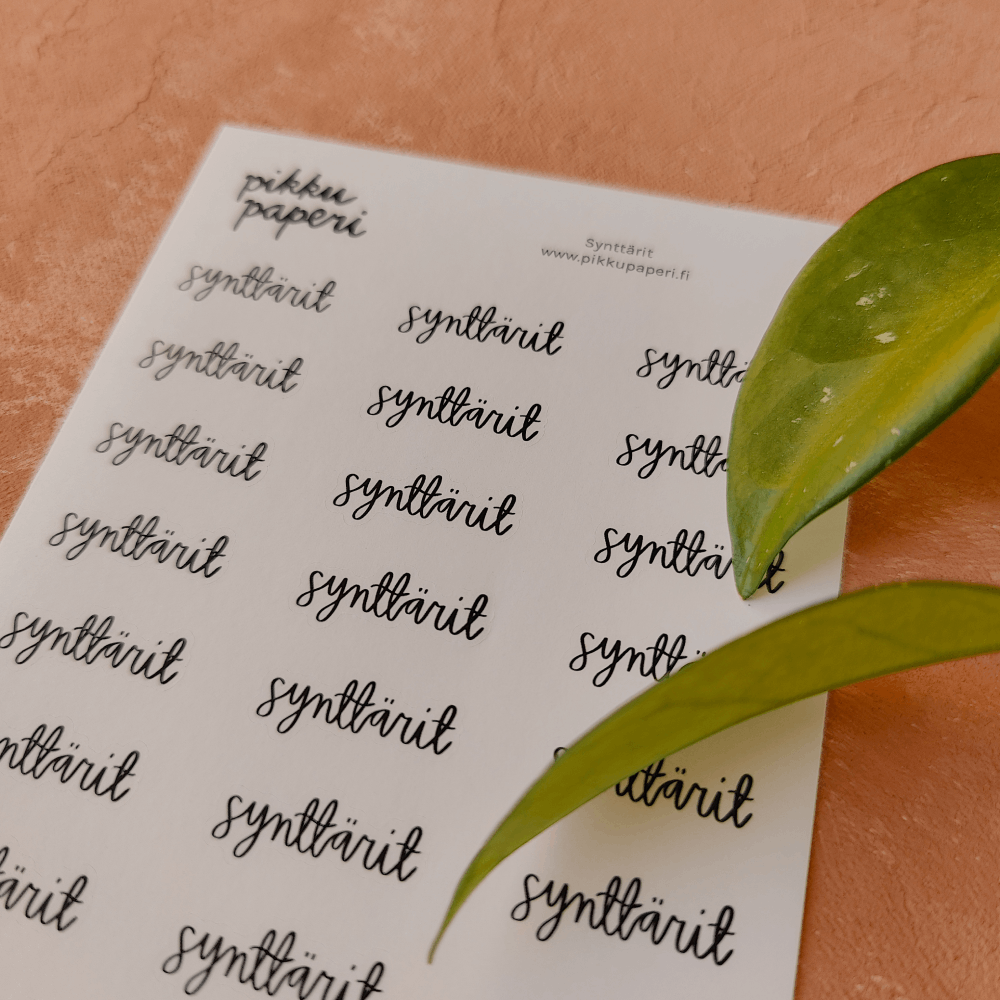 pikku
paperi
Synttärit
www.pikkupaperi.fi
synttärit synttärit syntt
synttärit synttärit syntt
synttärit synttärit synttä
synttärit synttärit syntt
synttärit synttärit ttärit
nttärit synttärit synttärit
ärit synttärit